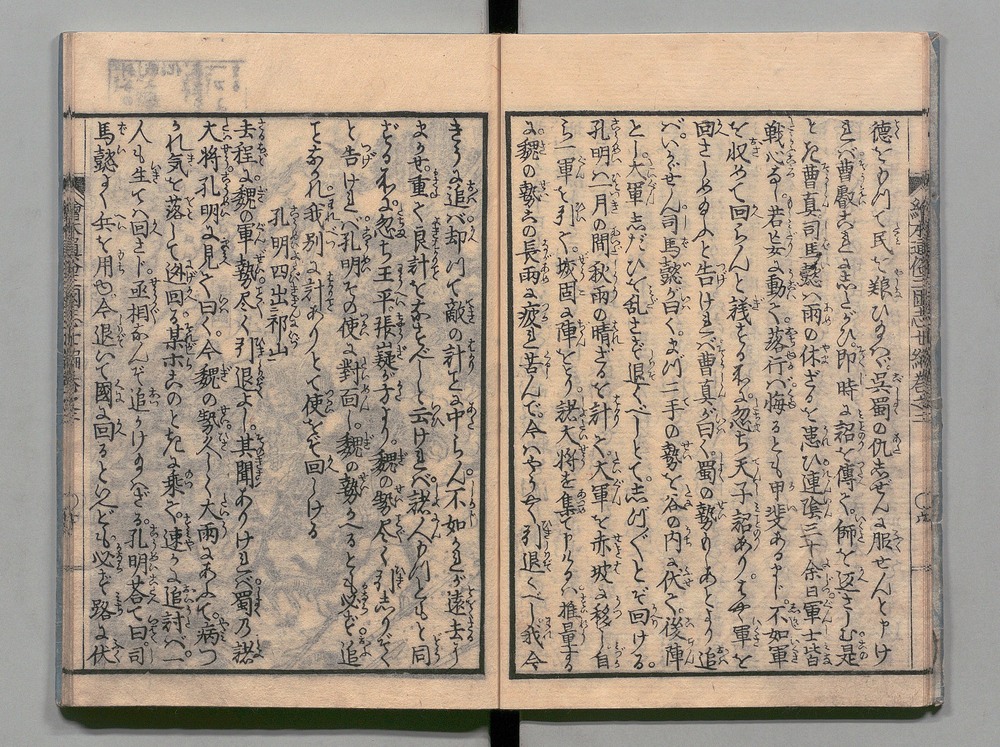 徳を以て民を慰ひ給ハヾ呉蜀の仇自ぜんに服せんと申け
れバ曹叡これに志たがひ即時に詔を傳て師を返さしむ是
とき曹真司馬懿ハ雨の休ざるを患ひ連陰三十余日軍士皆
戦心なし若妄に動て落行バ悔るとも甲斐あるまじ不如軍
を収めて回らんと議する所に忽ち天子詔ありはやく軍を
回さしめ給ふと告けれバ曹真が曰く蜀の勢もしあとより追
バいかゞせん司馬懿が曰くまづ二手の勢を谷の内に伏て後陣
とし大軍志だひを乱さず退くべしとて志づ〳〵とぞ回ける
孔明ハ一月の間秋雨の晴ざるを計て大軍を赤坡に移し自
ら一軍を引て城固に陣をとり諸大将を集て申けるハ推量する
に魏の勢この長雨に疲れ苦んで今ハはや引退くべし我今
きうに追バ却つて敵の計に中らん不如かれが遠去に
まかせ重て良計をなすべしと云けれバ諸人もつともと同
ずる所に忽ち王平張嶷が方より魏の勢尽く引志りぞく
と告けれバ孔明その使に對面し魏の勢かへるとも必ず追
ことなかれ我別に計ありとて使をぞ回しける
孔明四出祁山
去程に魏の軍勢尽く引退よし其聞ありけれバ蜀乃諸
大将孔明に見て曰く今魏の勢久しく大雨にあふて病つ
かれ気を落して逃回る某等このときに乗て速かに追討バ一
人も生てハ回さじ丞相なんぞ追かけ給ハざる孔明答て曰司
馬懿よく兵を用ゆ今退いて國に回るといへども必ず路に伏